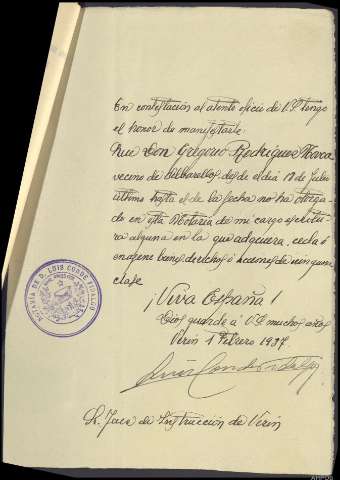 En contestación al atento oficio de V.S. tengo
el honor de manifestarle
Que Don Gregorio Rodriguez
vecino de desde el dia 18 de Julio
último hasta el de la fecha no ha otorga-
do en esta Notaria de mi cargo escritu-
ra alguna en la que adquiera, ceda ó
enagene bienes derechos ó acciones de ninguna
clase
¡Viva España!
Dios guarde á V.S. muchos años
Verin 1 Febrero 1937
Luis Conde
Sr. Juez de Instrucción de Verin
NOTARIA DE D. LUIS CONDE HIDALGO